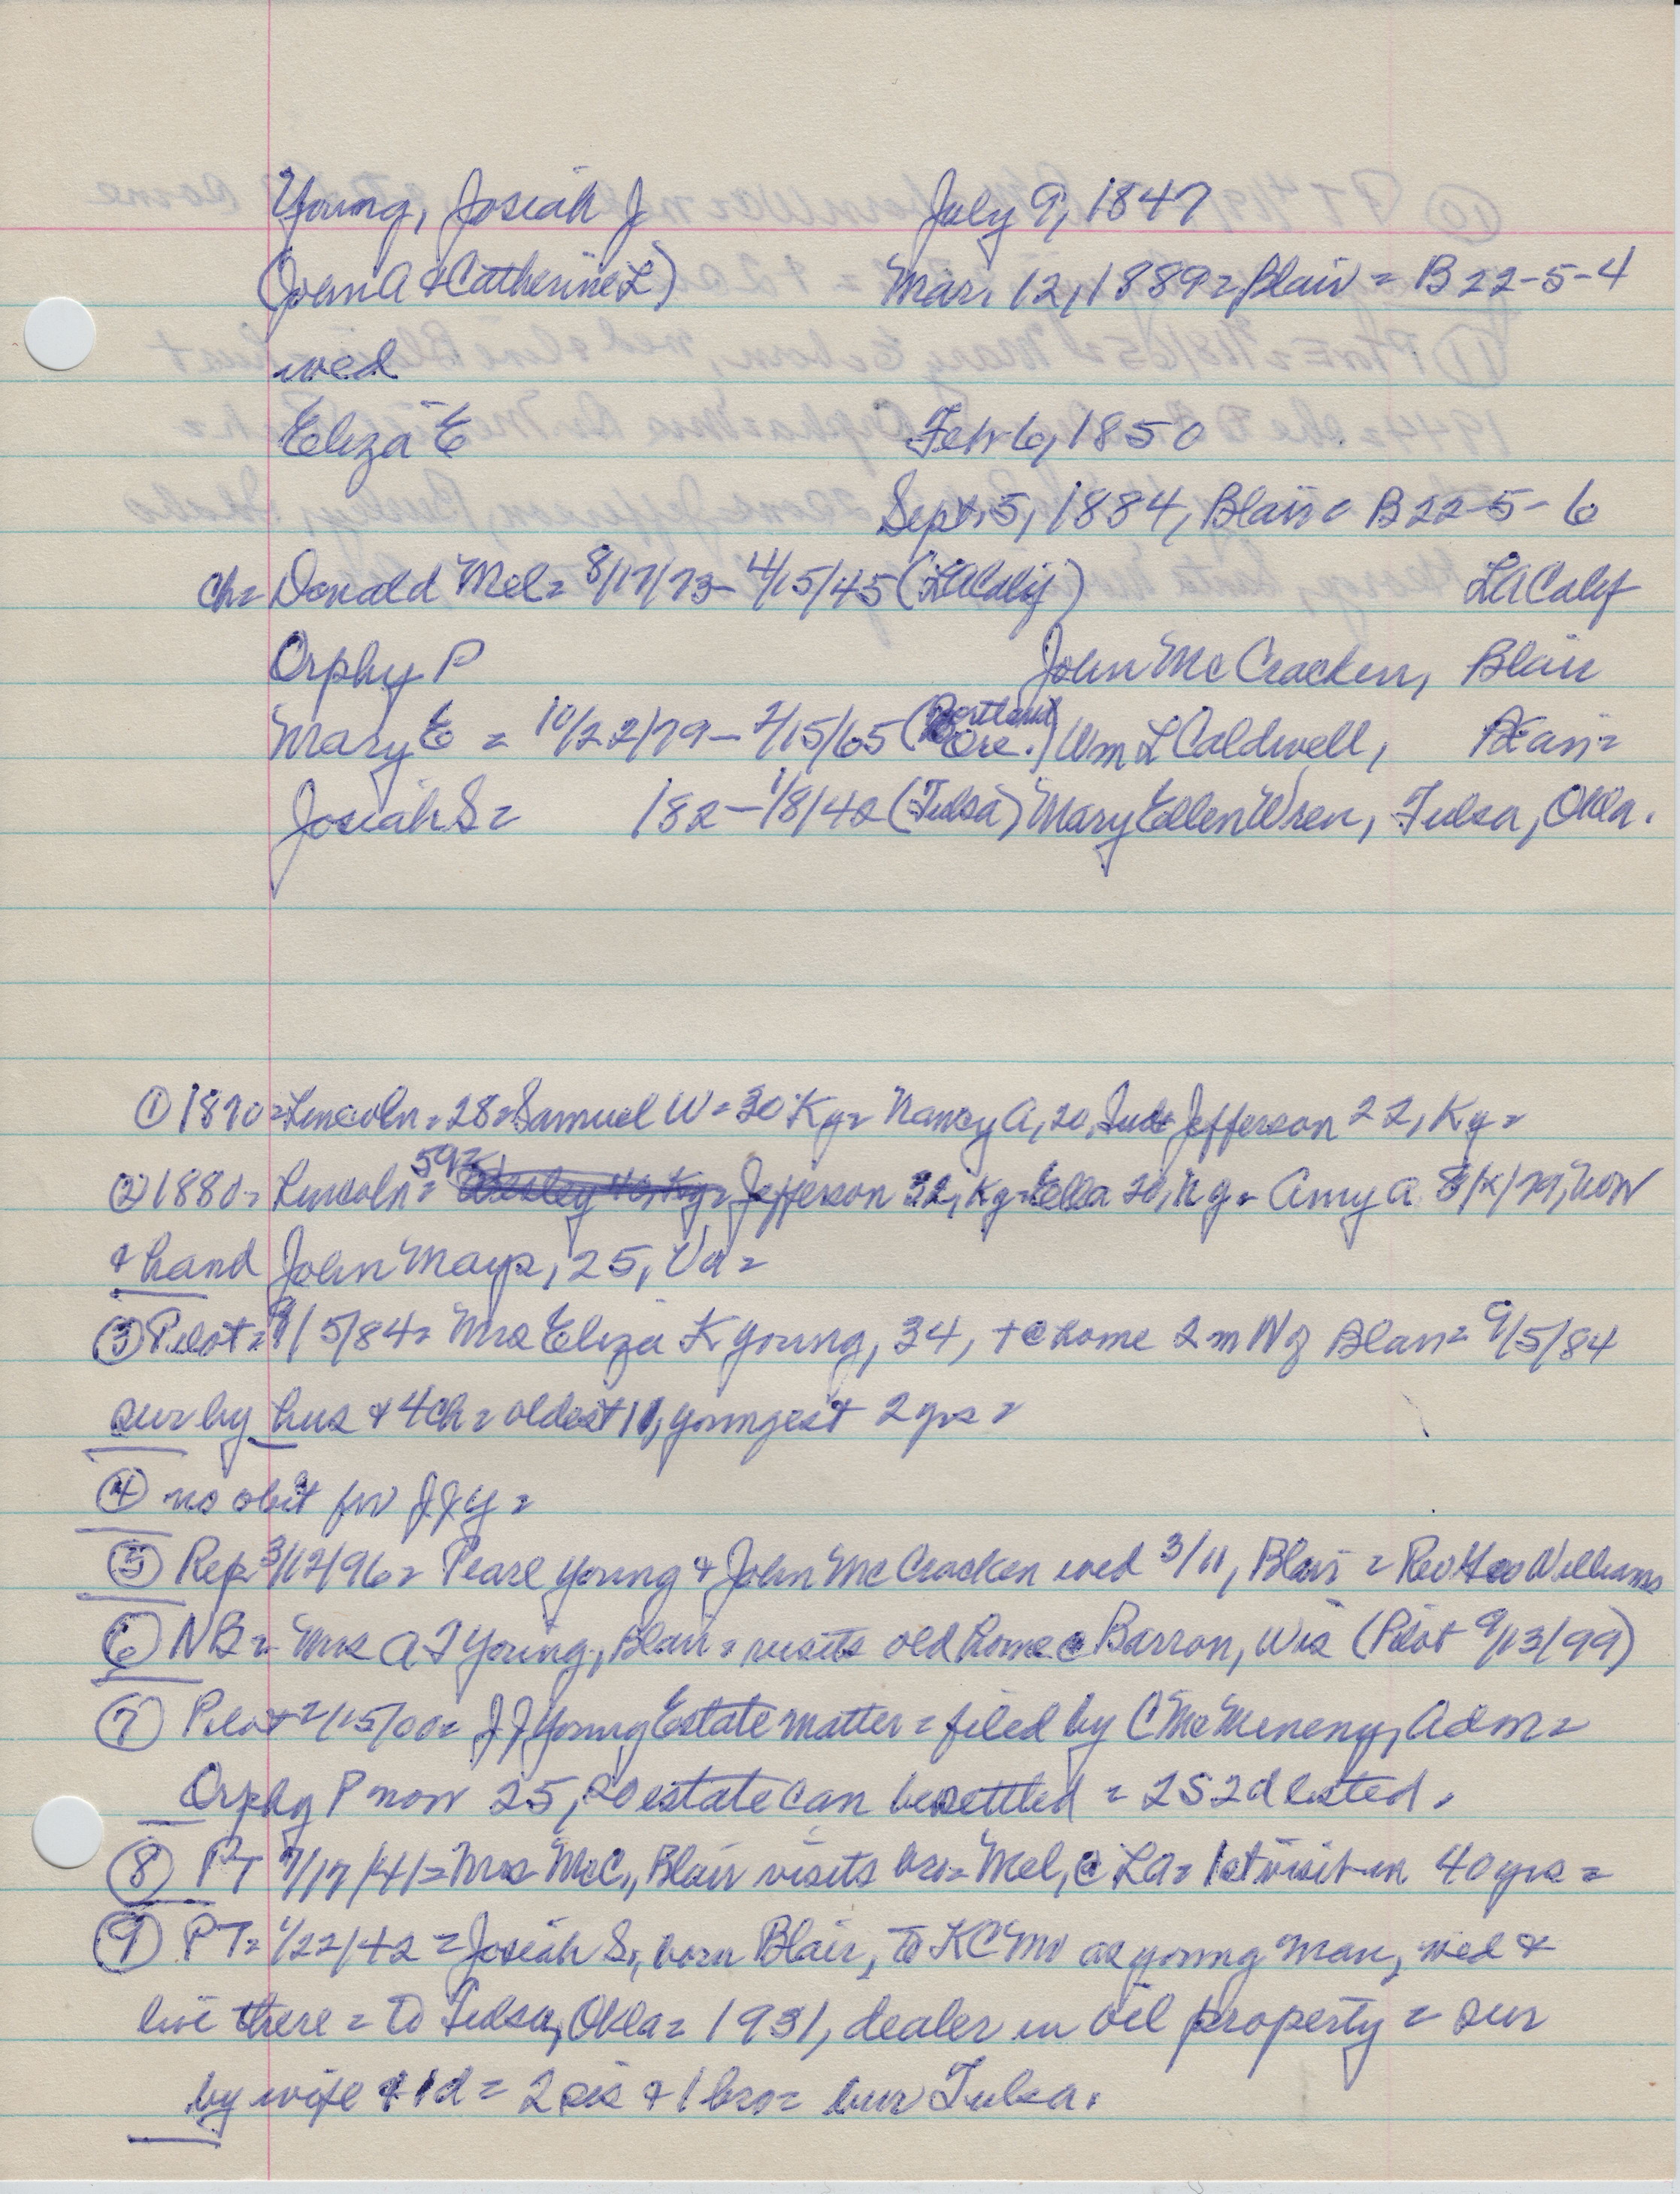 Young, Josiah J July 9, 1847
(John A & Catherine L) Mar. 12, 1889 = Blair = B 22-5-4
wed
Eliza E Feb 6, 1850
Sept. 5, 1884, Blair = B 22-5-6
ch = Donald Mel = 8/17/73 - 4/15/45 (LA Calif) LA Calif
Orphy P John McCracken, Blair
Mary E = 10/22/79 - 2/15/65 (Portland Ore.) Wm L Caldwell, Blair =
Josiah S = 182 - 1/8/42 (Tulsa) Mary Ellen Wren, Tulsa, Okla.
① 1870 = Lincoln = 28 = Samuel W = 30 Ky = Nancy A, 20, Ind = Jefferson 22, Ky =
② 1880 = Lincoln = 592 Jefferson 32, Ky = Ella 20, Ky = Amy A 8/x/79, now
& hand John Mays, 25, Va =
③ Pilot = 9/5/84 = Mrs Eliza K Young, 34, + @ home 2 m N of Blair = 9/5/84
sur by hus & 4 ch = oldest 11, youngest 2 yrs =
④ no obit for J J Y =
⑤ Rep 3/12/96 = Pearl Young & John McCracken wed 3/11, Blair = Rev Geo Williams
⑥ NB = Mrs A J Young, Blair = visits old home @ Barron, Wis (Pilot 9/13/99)
⑦ Pilot 2/15/00 = J J Young Estate matter = filed by C McMeneny, Adm =
Orphy P now 25, so estate can be settled = 2S 2d listed.
⑧ PT 7/17/41 = Mrs McC., Blair visits bro = Mel, @ LA = 1st visit in 40 yrs =
⑨ PT = 1/22/42 = Josiah S., born Blair, to KC Mo as young man, wed &
live there = to Tulsa, Okla = 1931, dealer in oil property = sur
by wife & 1 d = 2 sis & 1 bro = bur Tulsa.